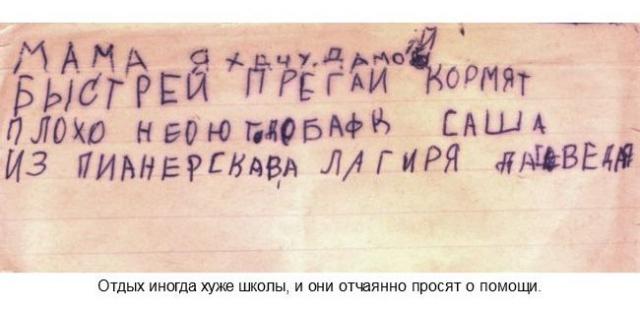 МАМА Я ХОЧУ ДАМОЙ
БЫСТРЕЙ ПРЕГАЙ КОРМЯТ
ПЛОХО САША
ИЗ ПИАНЕРСКАВА ЛАГИРЯ
Отдых иногда хуже школы, и они отчаянно просят о помощи.